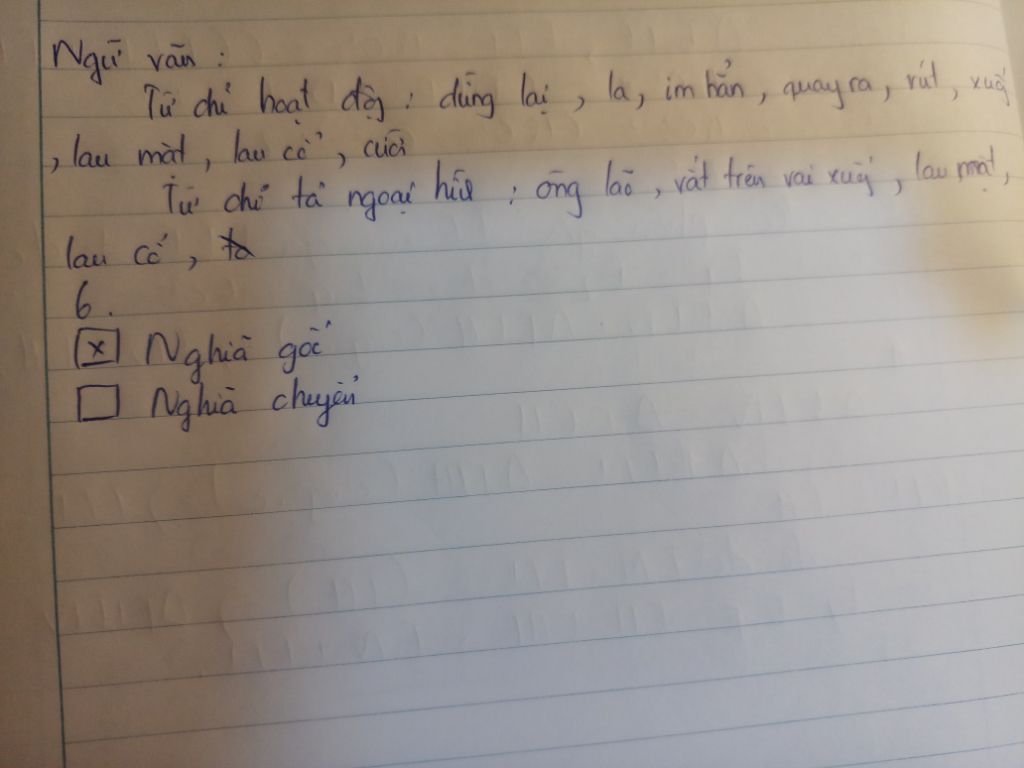 Ngữ văn :
Từ chỉ hoạt động : dừng lại , la , im hẳn , quay ra , rút , xuống
, lau mặt , lau cổ , cười
Từ chỉ tả ngoại hình : ông lão , vắt trên vai xuống , lau mặt ,
lau cổ ,
6 .
x Nghĩa gốc
Nghĩa chuyển